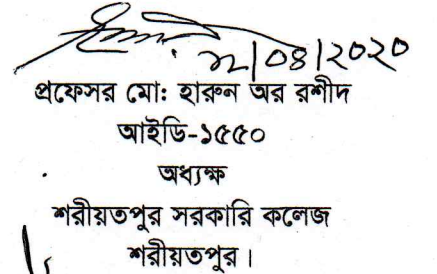 ১২/০৪/২০২০
প্রফেসর মো: হারুন অর রশীদ
আইডি-১৫৫০
অধ্যক্ষ
শরীয়তপুর সরকারি কলেজ
শরীয়তপুর।